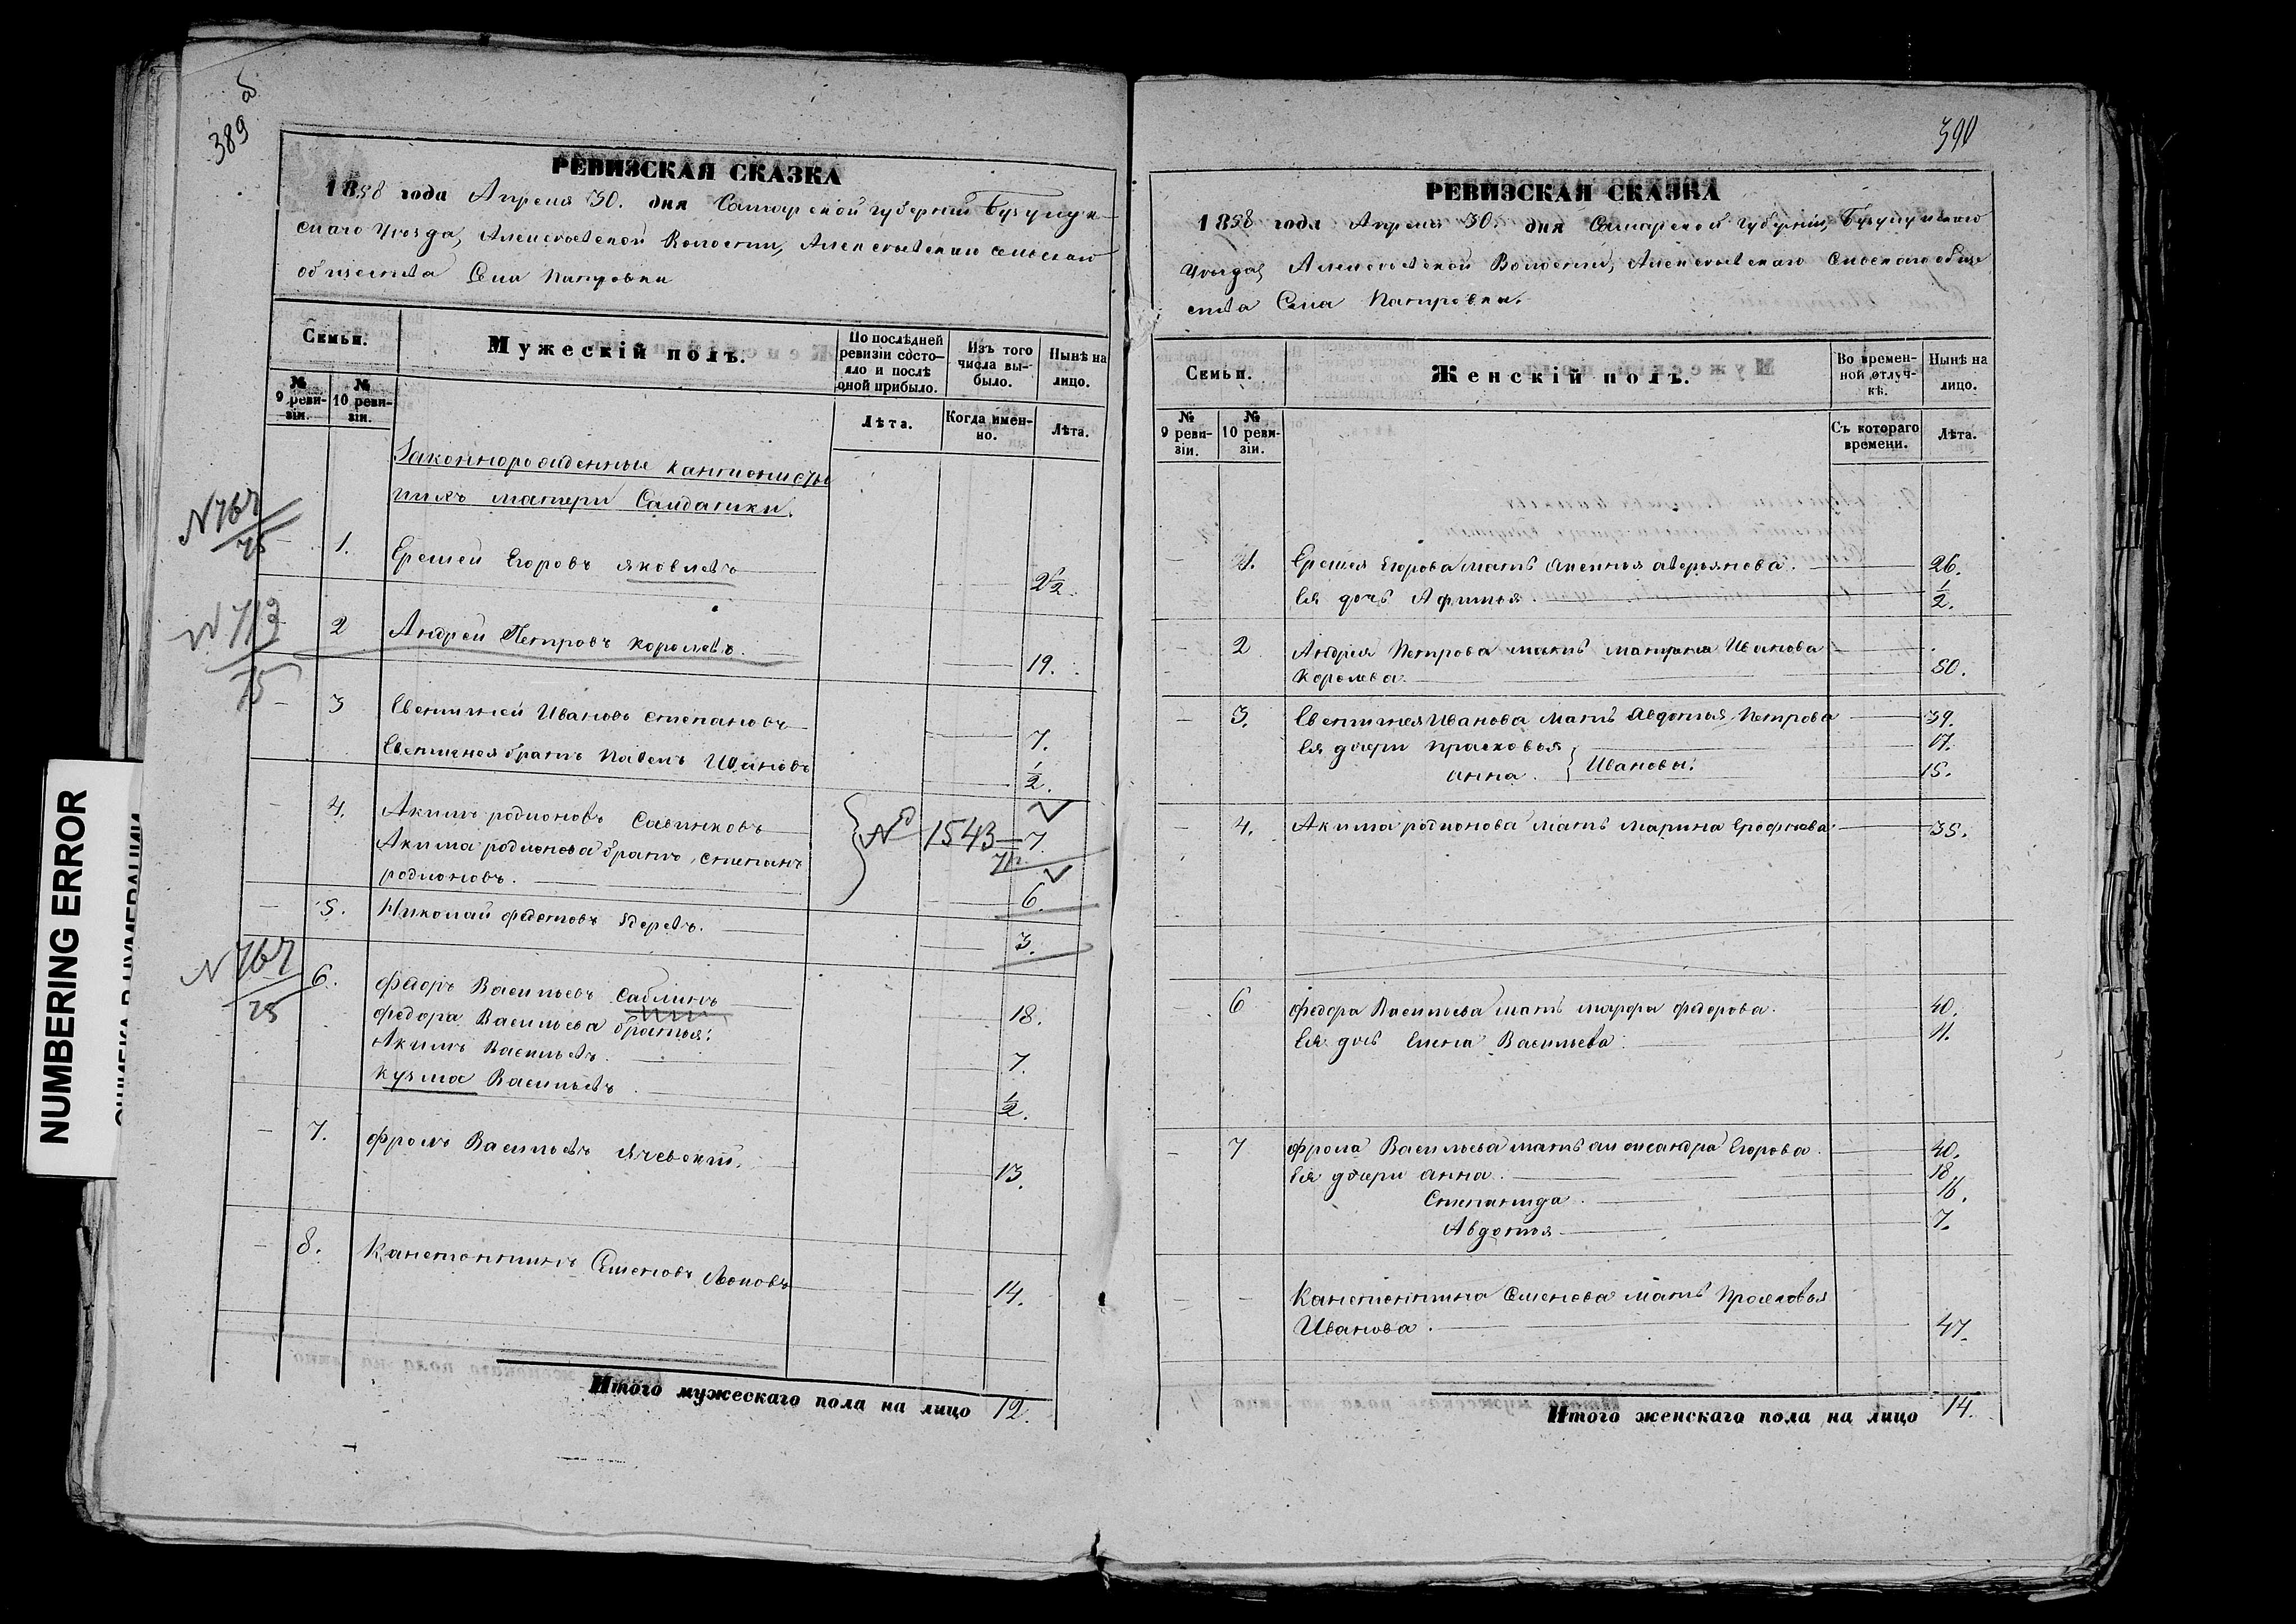 389 об
РЕВИЗСКАЯ СКАЗКА
1858 года Апреля 30. дня Самарской губерніи Бузулук-
скаго Уезда, Алексѣевской Волости, Алексѣевскаго сельскаго
общества Села Патровки
Семьи.
Мужескій полъ.
По послѣдней ревизіи состояло и послѣ оной прибыло.
Изъ того числа выбыло.
Нынѣ на лицо.
№ 9 ревизіи.
№ 10 ревизіи.
Лѣта.
Когда именно.
Лѣта.
Законнорожденные кантонисты
ихъ матери Салдатки.
N 767/75
1. Еремей Егоровъ Яковлевъ 2½.
N 713/75
2 Андрей Петровъ Королевъ. 19.
3 Евстигней Ивановъ Степановъ 7.
Евстигнея братъ Павелъ Ивановъ ½.
4. Акимъ родионовъ Савинковъ 7.
№ 1543
Акима родионова братъ, степанъ
родионовъ. 6.
5. Николай федотовъ 3.
N 767/75
6. федоръ Васильевъ Саблинъ 18.
федора Васильева братья:
Акимъ Васильевъ. 7.
Кузма Васильевъ ½.
7. фролъ Васильевъ Ячевскій. 13.
8. Канстонтинъ Семеновъ Поповъ 14.
Итого мужескаго пола на лицо 12.
390
РЕВИЗСКАЯ СКАЗКА
1858 года Апреля 30. дня Самарской губерніи, Бузулукскаго
Уѣзда, Алексѣевской Волости, Алексѣевскаго Сельскаго обще
ства Села Патровки.
Семьи.
Женскій полъ.
Во временной отлучкѣ.
Нынѣ на лицо.
№ 9 ревизіи.
№ 10 ревизіи.
Съ котораго времени.
Лѣта.
1. Еремея Егорова мать аверьянова. 26.
Ея дочь Афимья. ½.
2 Андрея Петрова мать матрена Иванова
Королева. 50.
3. Евстигнея Иванова мать Авдотья Петрова 39.
Ея дочери прасковья 17.
анна. } Ивановы: 15.
4. Акима родионова мать марина Ерофѣева 35.
6 федора Васильева мать марфа федорова. 40.
Ея дочь Елена Васильева 11.
7 фрола Васильева мать александра Егорова 40.
Ея дочери анна. 18
Степанида. 16.
Авдотья 7.
Канстонтина Семенова мать Просковья
Иванова. 47.
Итого женскаго пола на лицо 14.
NUMBERING ERROR